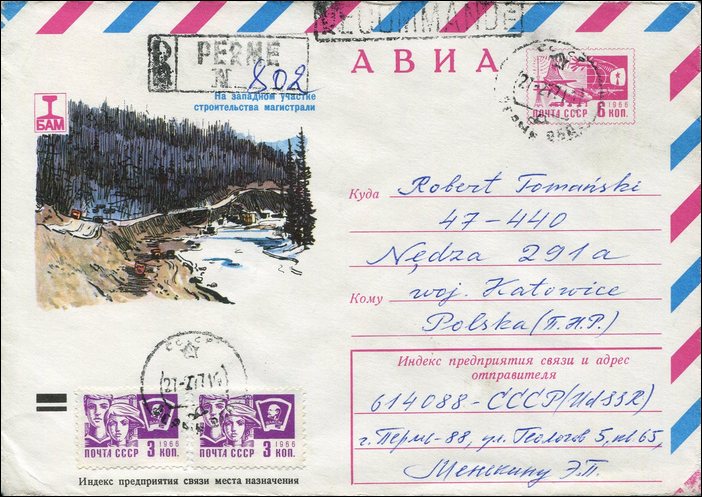 RECOMMANDÉ
R PERME
N 802
АВИА
БАМ
На западном участке
строительства магистрали
СССР
1966
6 КОП.
ПОЧТА СССР
Куда
Robert Tomański
47-440
Nędza 291a
Кому
woj. Katowice
Polska (П.Н.Р.)
Индекс предприятия связи и адрес
отправителя
614088-СССР (UdSSR)
г. Пермь-88, ул. Геологов 5, кв 65,
Менькину Э.П.
СССР
1966
3 КОП.
ПОЧТА СССР
1966
3 КОП.
ПОЧТА СССР
Индекс предприятия связи места назначения